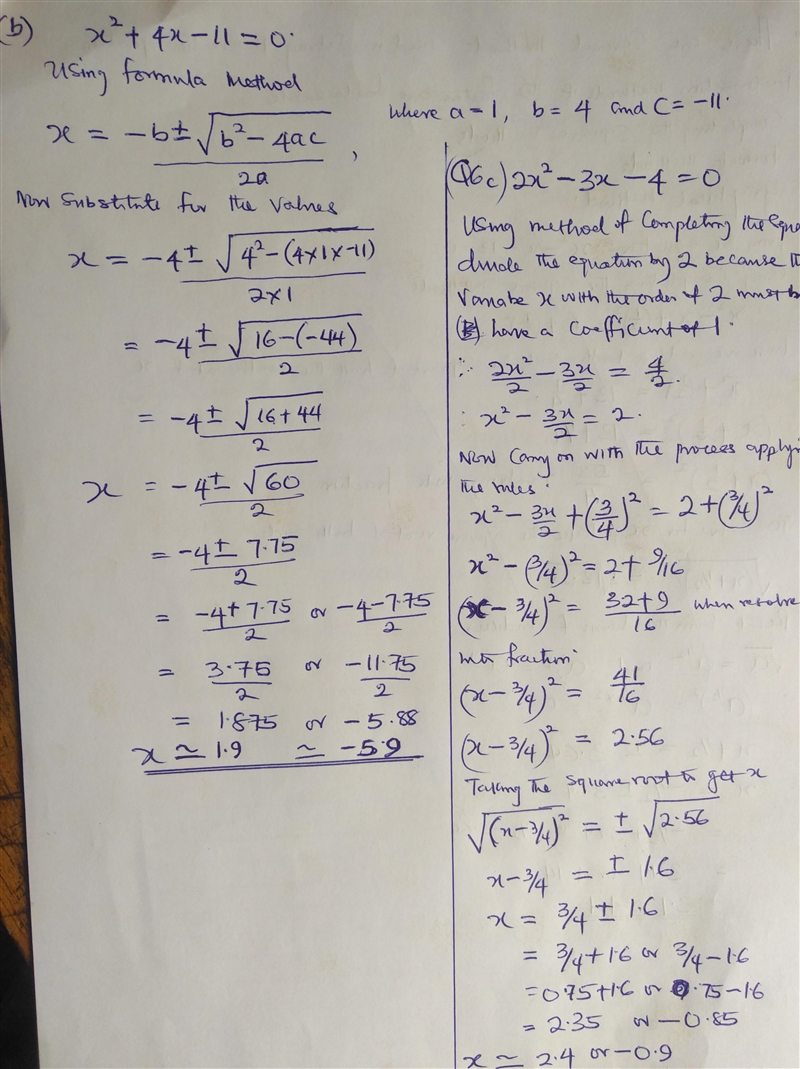 (b) x² + 4x - 11 = 0.
Using formula Method
x = -b ± √(b² - 4ac) / 2a , where a = 1, b = 4 and C = -11.
Now Substitute for the values
x = -4 ± √(4² - (4×1×-11)) / 2×1
= -4 ± √(16-(-44)) / 2
= -4 ± √(16+44) / 2
x = -4 ± √60 / 2
= -4 ± 7.75 / 2
= -4+7.75 / 2 or -4-7.75 / 2
= 3.75 / 2 or -11.75 / 2
= 1.875 or -5.88
x ≃ 1.9 ≃ -5.9
(Q6c) 2x² - 3x - 4 = 0
Using method of Completing the
divide the equation by 2 because
Variabe x with the order of 2 must
have a Coefficient of 1.
∴ 2x²/2 - 3x/2 = 4/2.
: x² - 3x/2 = 2.
Now Carry on with the process
the rules.
x² - 3x/2 + (3/4)² = 2 + (3/4)²
x² - (3/4)² = 2 + 9/16
(x - 3/4)² = 32+9 / 16 when resolve
into fraction.
(x - 3/4)² = 41/16
(x - 3/4)² = 2.56
Taking the Square root to get x
√(x-3/4)² = ± √2.56
x - 3/4 = ± 1.6
x = 3/4 ± 1.6
= 3/4 + 1.6 or 3/4 - 1.6
= 0.75+1.6 or 0.75-1.6
= 2.35 or -0.85
x ≃ 2.4 or -0.9